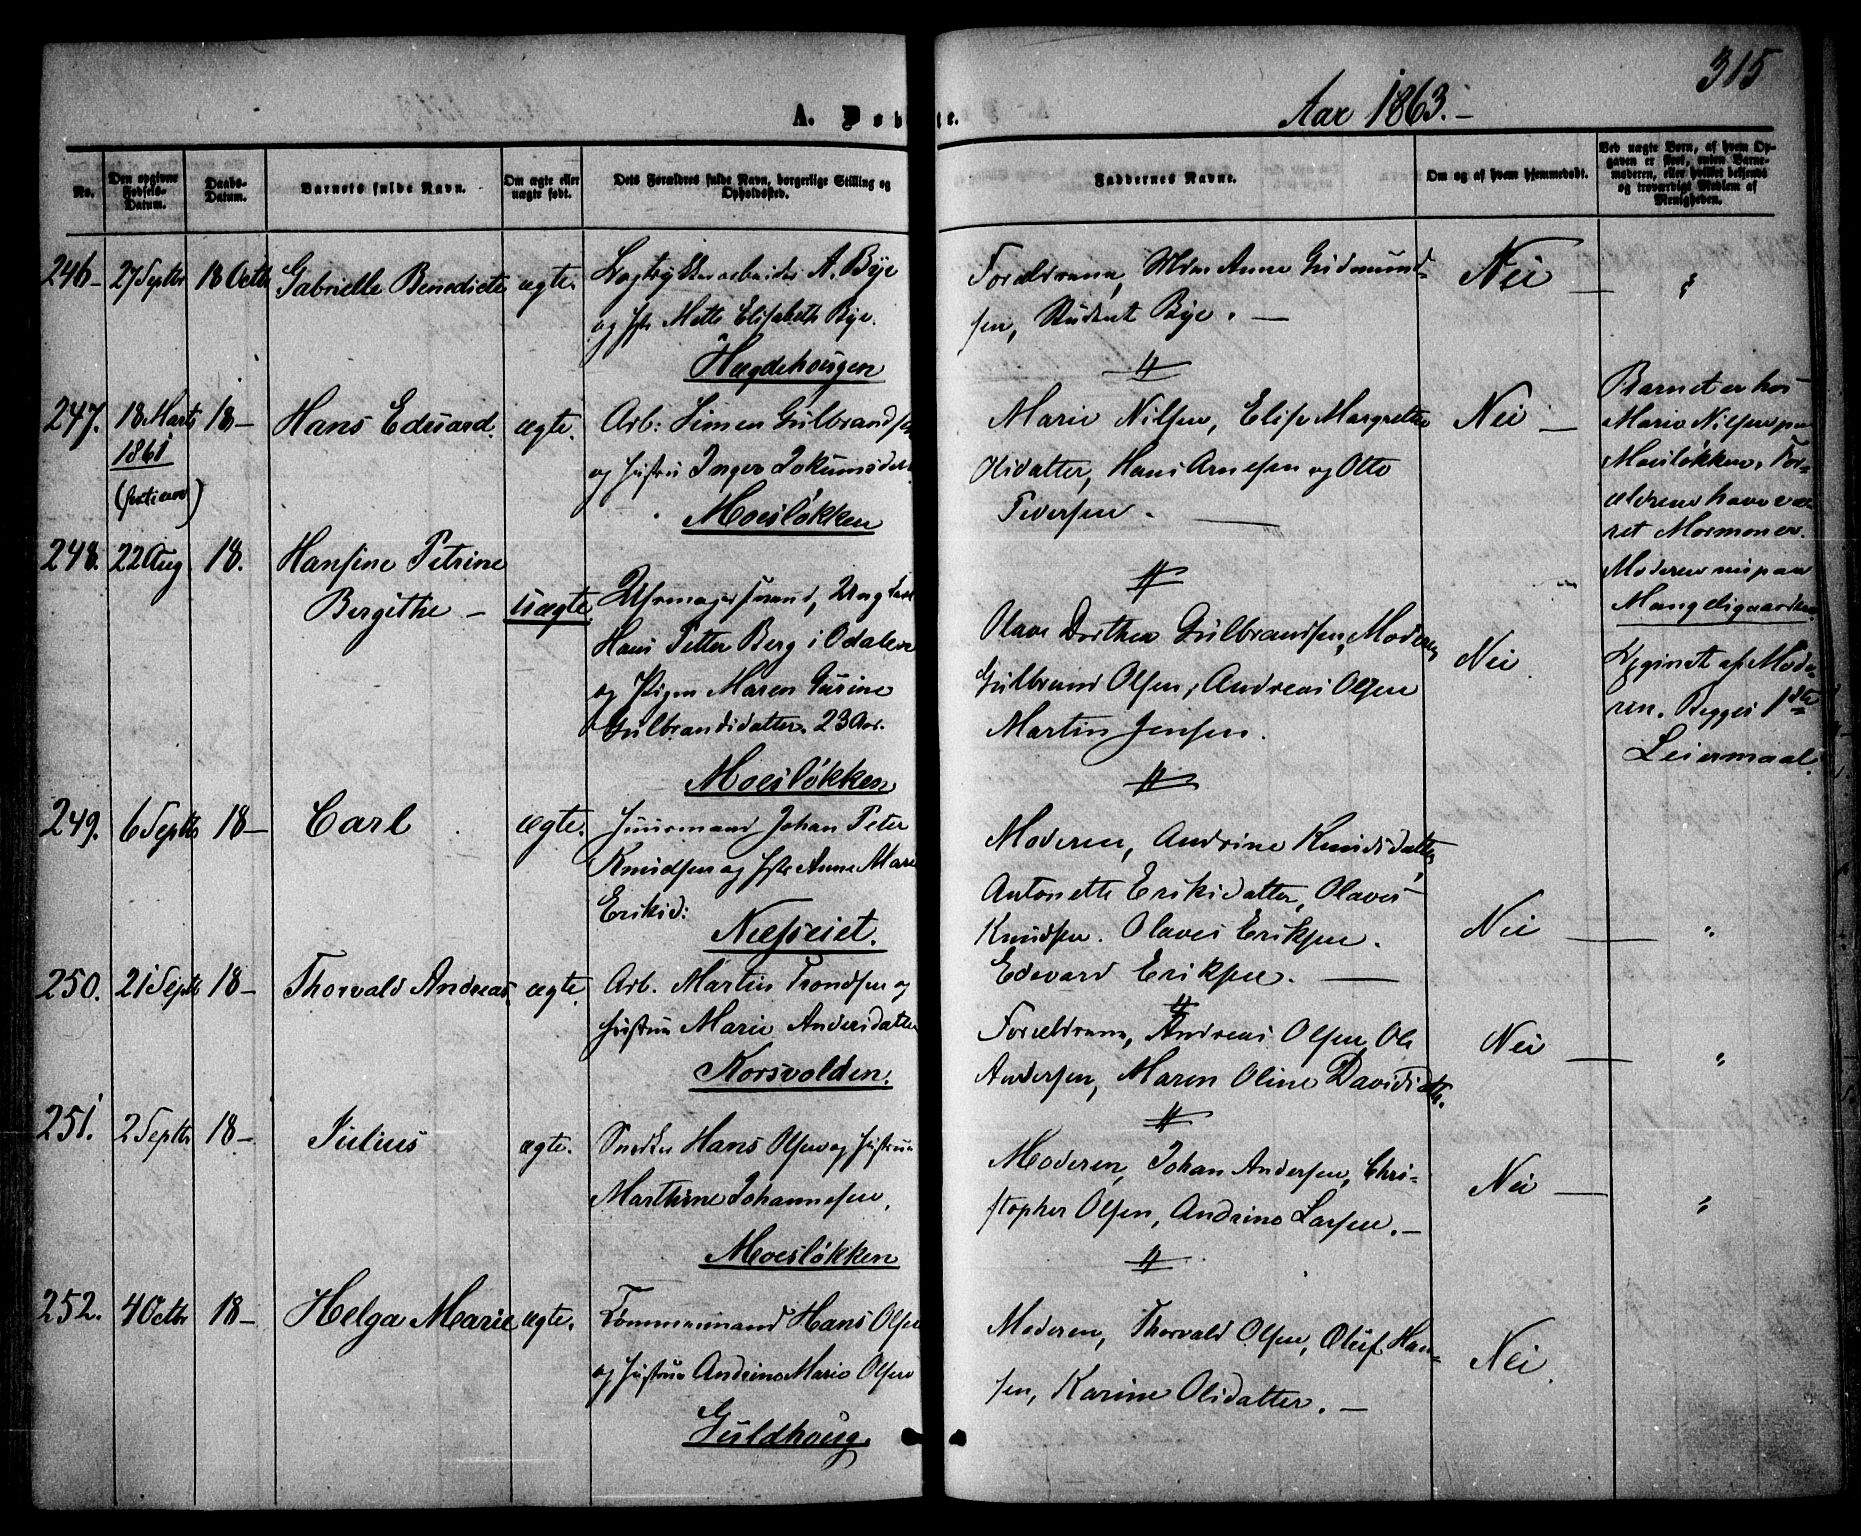 315
A. Døbte.
Aar 1863.-
No.
Den opgivne Fødsels-Datum.
Daabs-Datum.
Barnets fulde Navn.
Om ægte eller uægte født.
Dets Forældres fulde Navn, borgerlige Stilling og Opholdssted.
Faddernes Navne.
Om og af hvem hjemmedøbt.
Ved uægte Børn, af hvem Opgaven er skeet, enten Barnemoderen, eller hvilket bekjendt og troværdigt Medlem af Menigheden.
246- 27 Septbr 18 Octbr Gabrielle Benedicte ægte. A. Bye
og Mette Elisabeth Bye.
Hægdehougen
Forældrene, Anne Gudmund-
sen, Student Bye. -
Nei - "
247. 18 Marts 18- Hans Eduard. ægte.
1861
Arb: Simen Gulbrandsen
og Hustru Inger
Moesløkken
Marie Nilsen, Elise Margrethe
Olsdatter, Hans Arnesen og Otto
Pedersen.
Nei -
Barnet er hos
Marie Nilsen paa
Moesløkken. For-
ældrene have væ-
ret Mormoner.
Moderen nu paa
Mangelsgaarden
248. 22 Aug 18. Hansine Petrine
Bergithe - uægte
Uhrmagersvend, Ungkarl
Hans Petter Berg i Odalen
og Pigen Maren Gurine
Gulbrandsdatter. 23 Aar.
Moesløkken
Olave Dorthea Gulbrandsen, Moderen
Gulbrand Olsen, Andreas Olsen
Martin Jensen.
Nei.
Opgivet af Mode-
ren. Begges 1ste
Leiermaal.
249. 6 Septbr 18- Carl ægte.
Huusmand Johan Peter
Knudsen og Hstr Anne Marie
Eriksd:
Næsseiet.
Moderen, Andrine Knudsdatter,
Antonette Eriksdatter, Olaves
Knudsen. Olaves Eriksen.
Edevard Eriksen. -
Nei - "
250. 21 Septbr 18- Thorvald Andreas ægte.
Arb. Martin Trondsen og
Hustru Marie Andersdatter
Korsvolden.
Forældrene, Andreas Olsen, Ole
Andersen, Maren Oline Davidsdtr.
Nei - "
251. 2 Septbr 18- Julius ægte.
Snedker Hans Olsen og Hustru
Marthine Johannesen.
Moesløkken
Moderen, Johan Andersen, Chri-
stopher Olsen, Andrine Larsen. -
Nei - "
252. 4 Octbr 18- Helga Marie ægte.
Tømmermand Hans Olsen
og Hustru Andrine Marie Olsen
Guldhoug.
Moderen, Thorvald Olsen, Oluf Han-
sen, Karine Olsdatter. -
Nei.